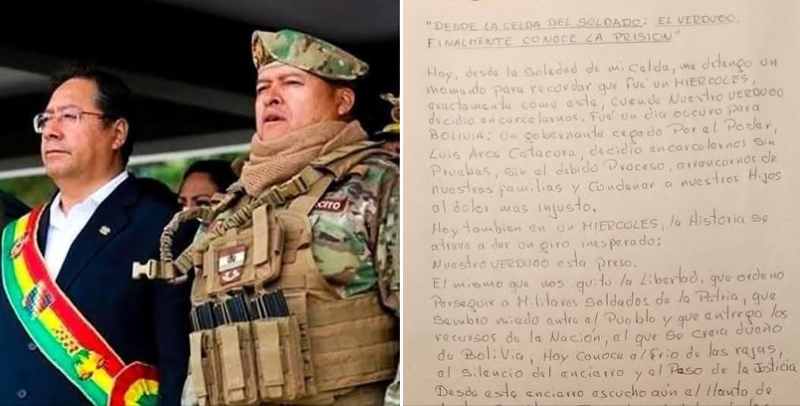 ÉRCITO
"DESDE LA CELDA DEL SOLDADO: EL VERDUGO
FINALMENTE CONOCE LA PRISION"
Hoy, desde la Soledad de mi Celda, me detengo un
momento para recordar que fué un MIERCOLES,
exactamente como este, Cuando Nuestro VERDUGO
decidio encarcelarnos. Fué un dia oscuro para
BOLIVIA: Un gobernante cegado Por el Poder,
Luis Arce Catacora, decidio encarcelarnos Sin
Pruebas, Sin el debido Proceso, arrancarnos de
nuestras familias y Condenar a nuestros Hijos
al dolor mas injusto.
Hoy tambien en un MIERCOLES, la Historia se
atreve a dar un giro inesperado:
Nuestro VERDUGO esta preso.
El mismo que nos quito la Libertad, que ordeno
Perseguir a Militares Soldados de la Patria, que
Sembro miedo entre el Pueblo y que entrego los
recursos de la Nación, al que Se Creia dueño
de Bolivia, Hoy Conoce el frio de las rejas,
el Silencio del encierro y el Peso de la Justicia
Desde este encierro escucho aún el llanto de